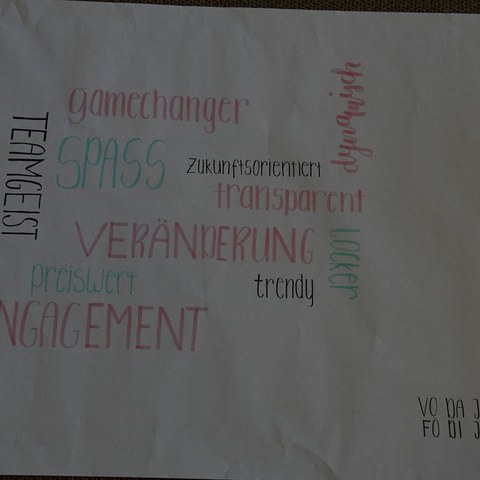 gamechanger
dynamisch
TEAMGEIST
SPASS
zukunftsorientiert
transparent
VERÄNDERUNG
LOCKER
preiswert
trendy
NGAGEMENT
VO DA J
FO DI J